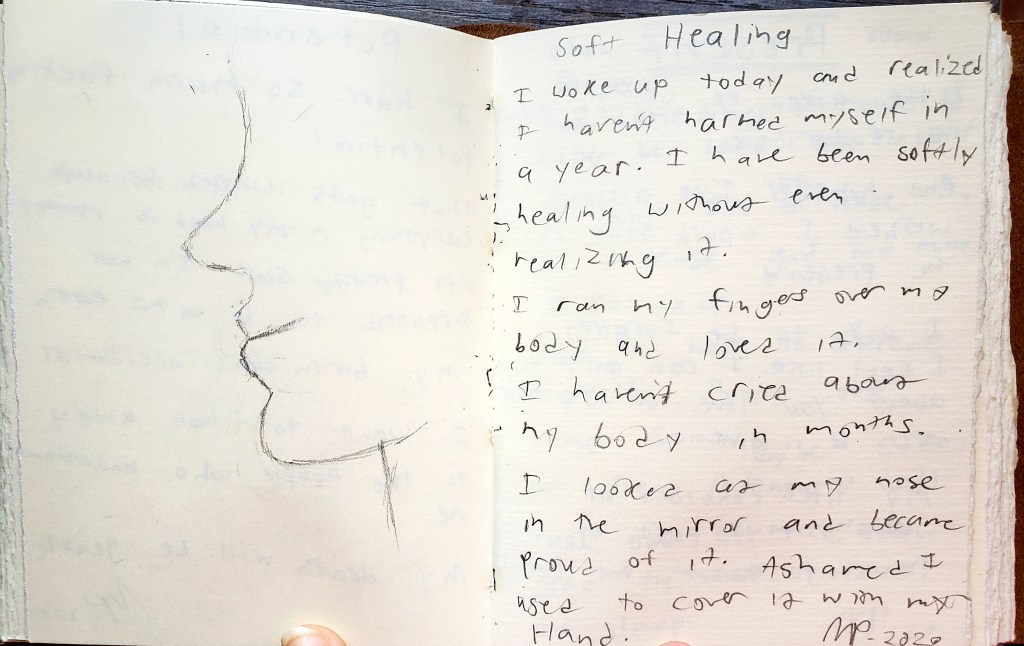 Soft Healing
I woke up today and realized
I haven't harmed myself in
a year. I have been softly
healing without even
realizing it.
I ran my fingers over my
body and loved it.
I haven't cried about
my body in months.
I looked at my nose
in the mirror and became
proud of it. Ashamed I
used to cover it with my
Hand. MP-2020